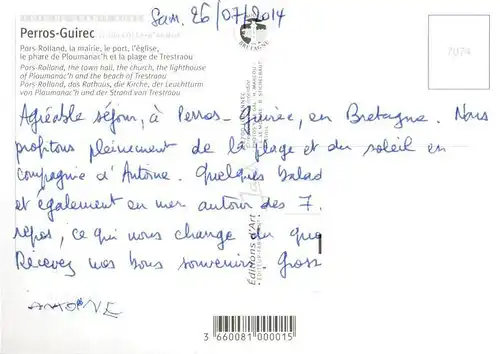 Sam. 26/07/2014
Perros-Guirec
Pors-Rolland, la mairie, le port, l'église,
le phare de Ploumanac'h et la plage de Trestraou
Pors-Rolland, the town hall, the church, the lighthouse
of Ploumanac'h and the beach of Trestraou
Pors-Rolland, das Rathaus, die Kirche, der Leuchtturm
von Ploumanac'h und der Strand von Trestraou
BRETAGNE
7074
Agréable séjour, à Perros-Guirec, en Bretagne. Nous
profitons pleinement de la plage et du soleil en
compagnie d'Antoine. Quelques balad
et également en mer autour des 7.
repos, ce qui nous change du quo
Recevez nos bons souvenirs. Gross
ANTOINE
Editions d'Art
3 660081 000015